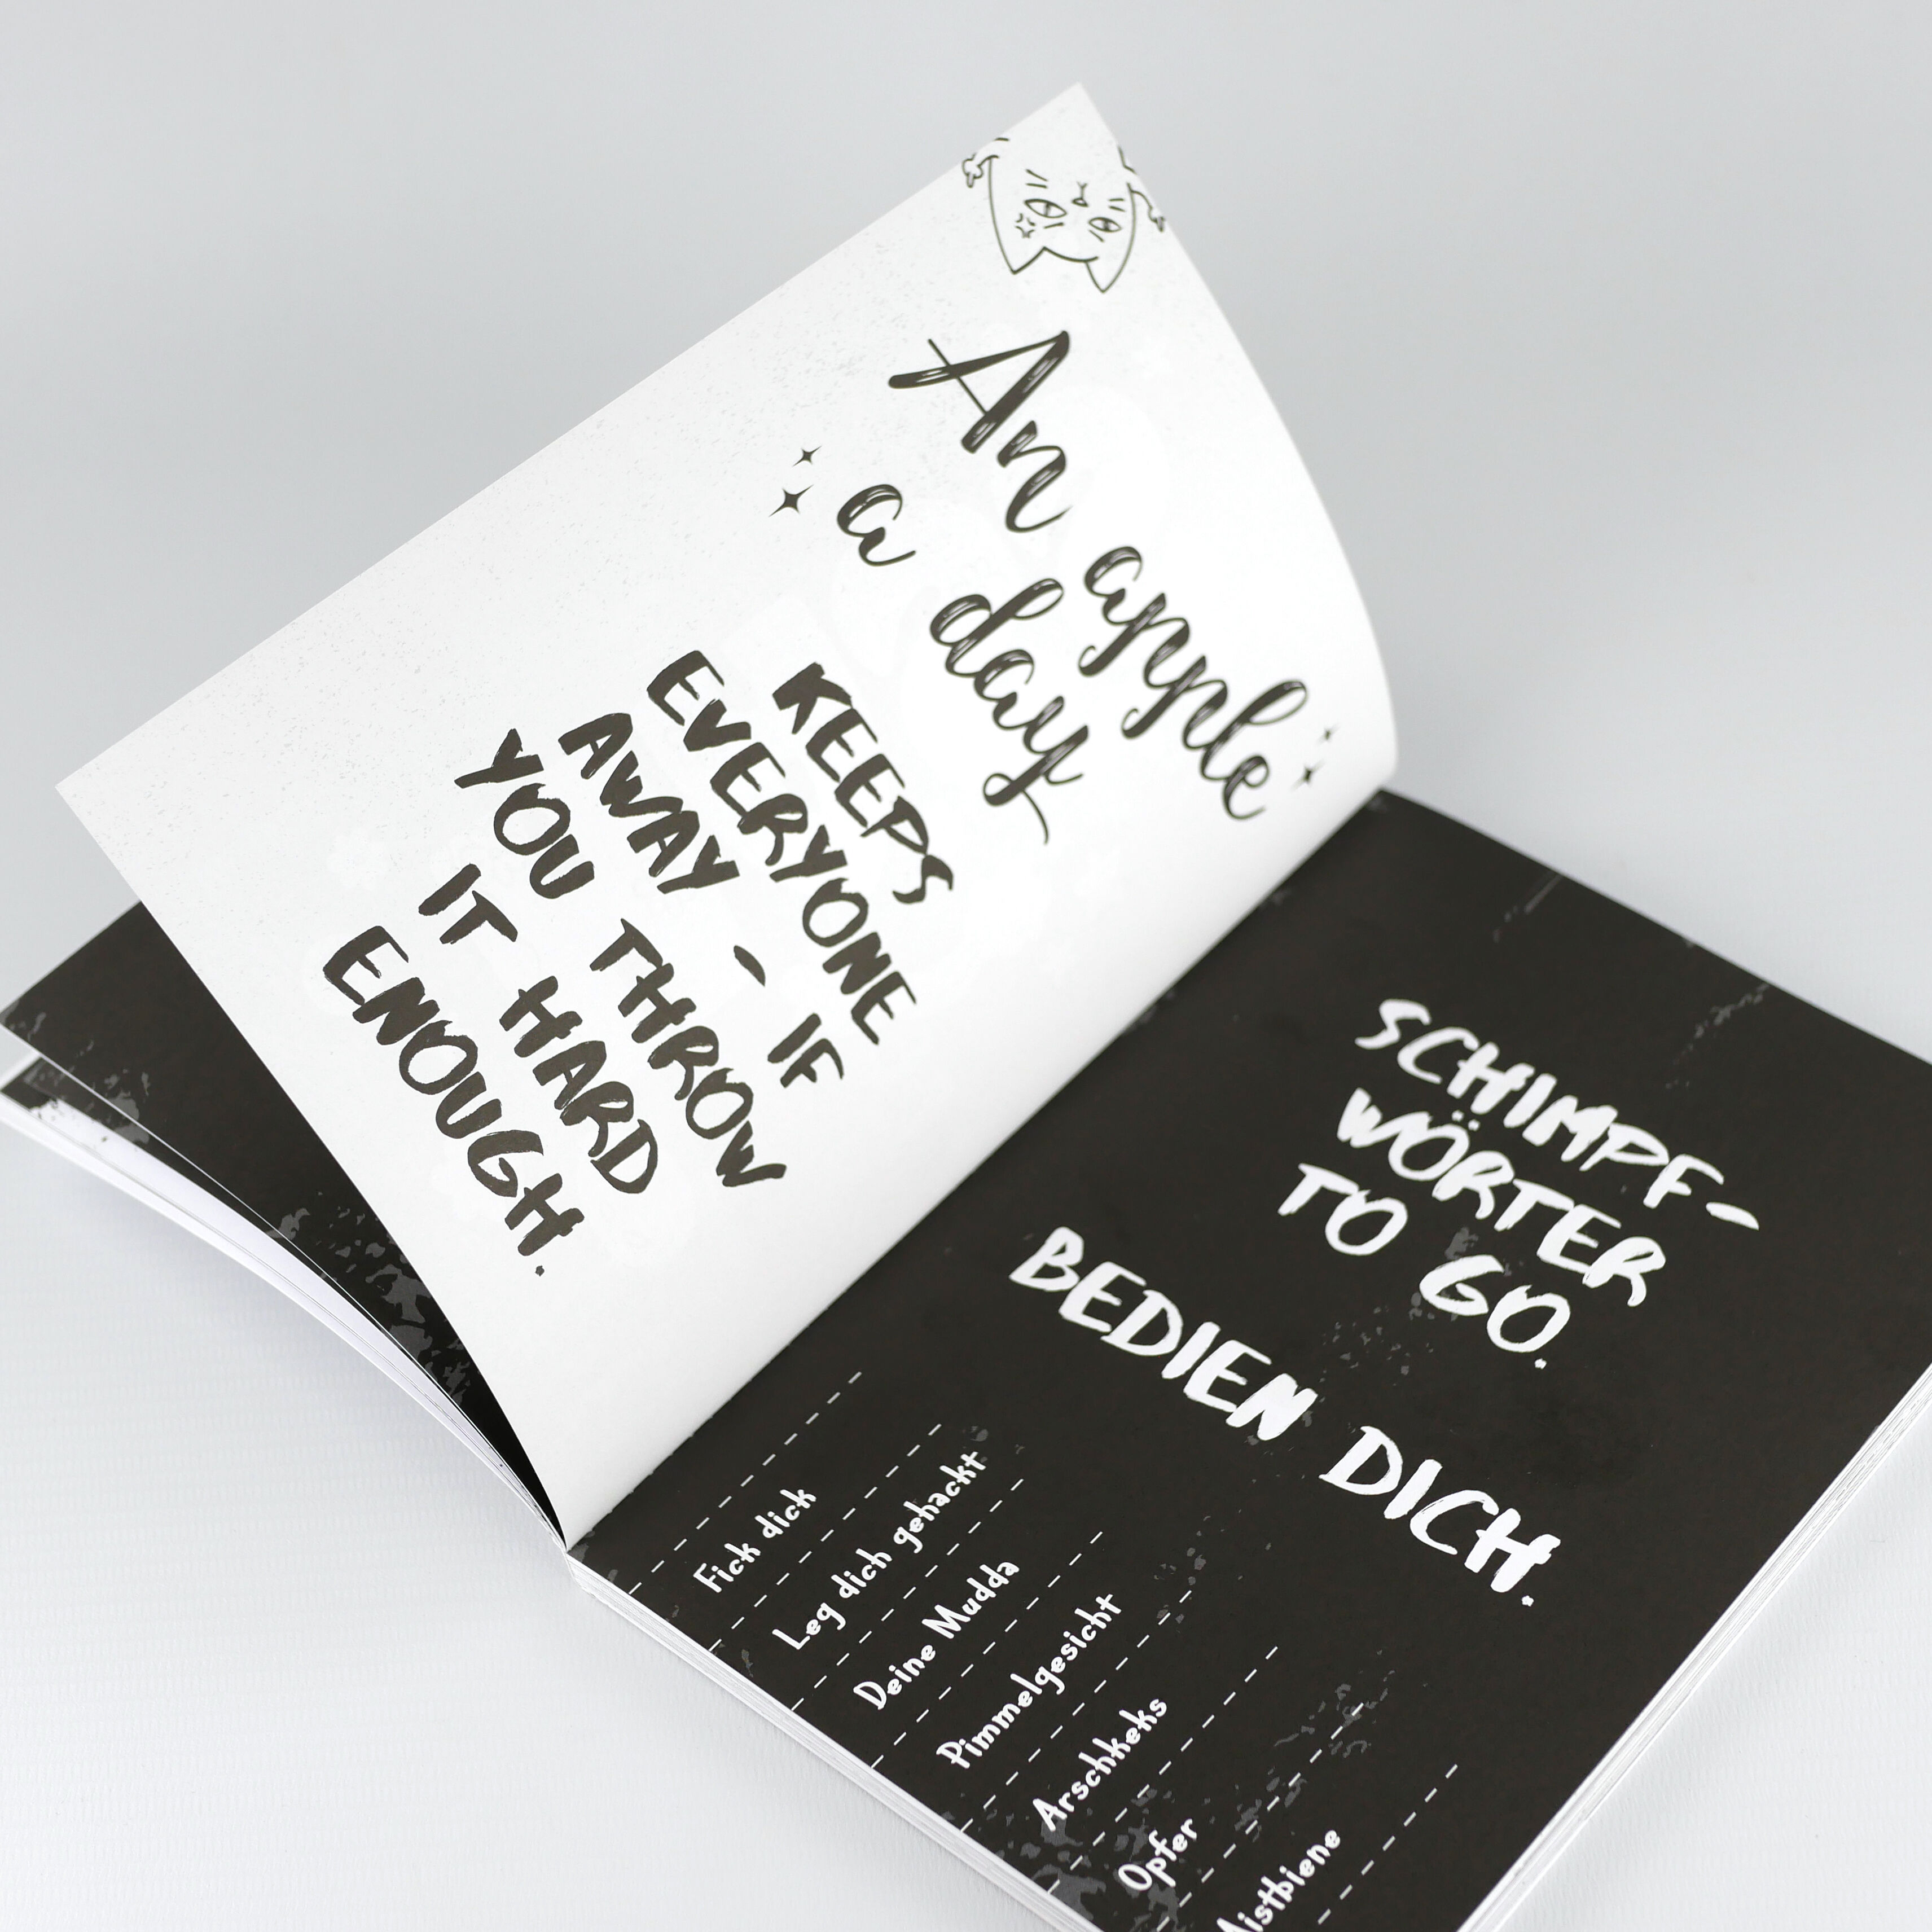 An apple
a day
KEEPS
EVERYONE
AWAY - IF
YOU THROW
IT HARD
ENOUGH.
SCHIMPF-
WÖRTER
TO GO.
BEDIEN DICH.
Fick dich
Leg dich gehackt
Deine Mudda
Pimmelgesicht
Arschkeks
Opfer